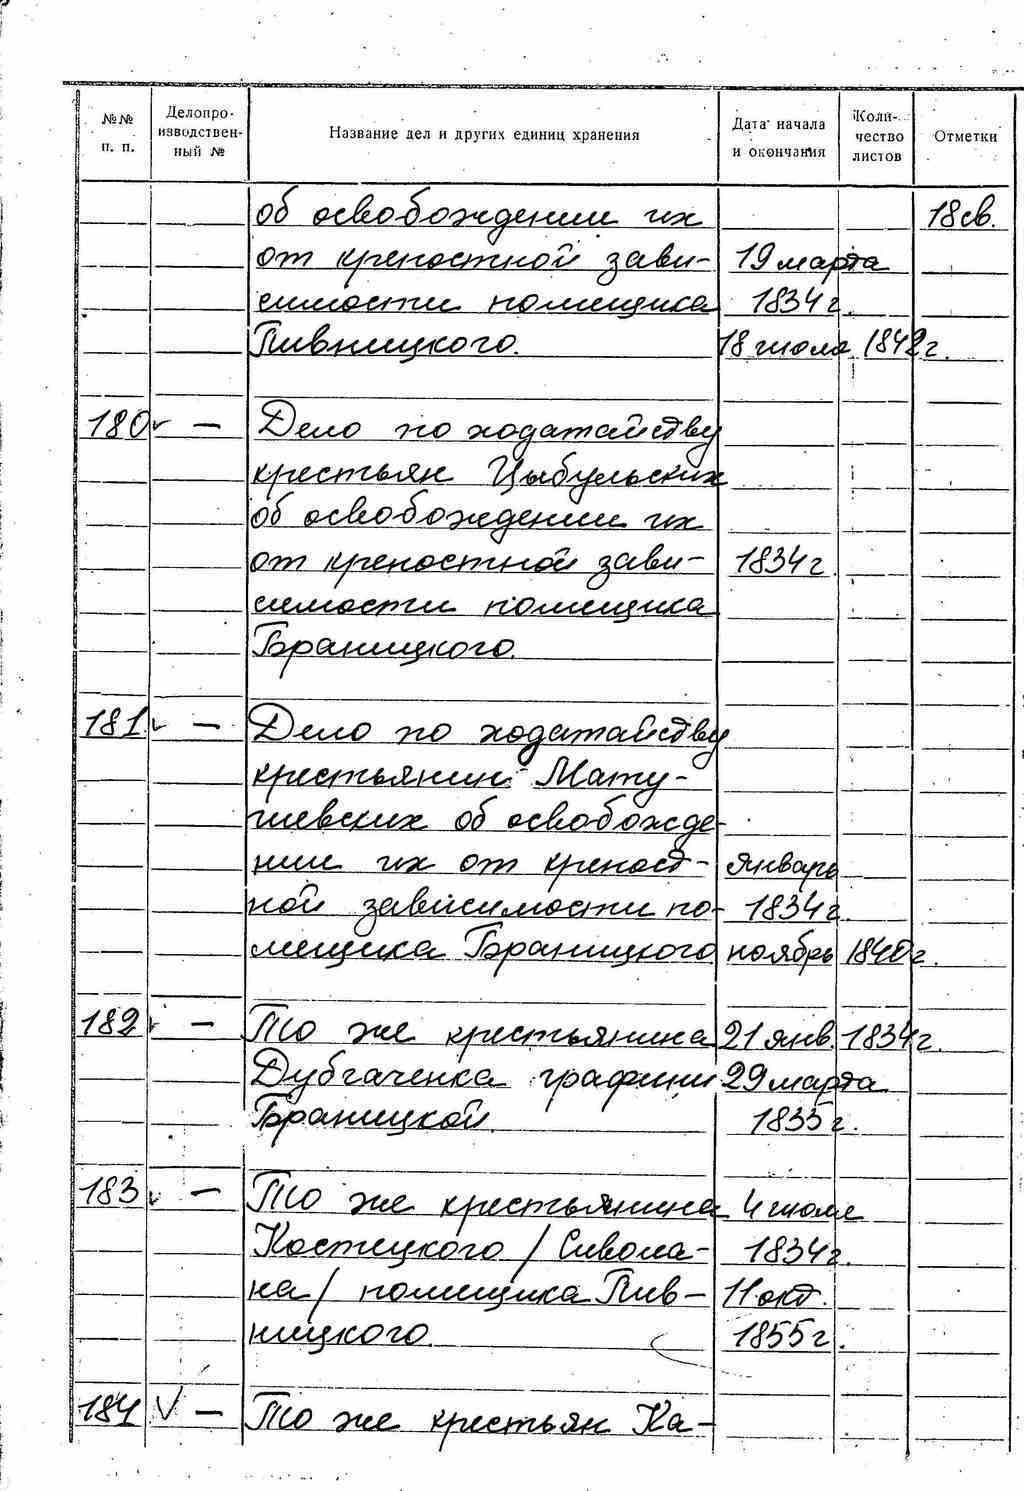 №№ п. п. Делопроизводственный № Название дел и других единиц хранения Дата начала и окончания Количество листов Отметки
об освобождении их 18 св.
от крепостной зави- 19 марта
симости помещика 1834 г.
Пивницкого. 18 июля 1842 г.
180 ✓ — Дело по ходатайству
крестьян Цыбульских
об освобождении их
от крепостной зави- 1834 г.
симости помещика
Браницкого.
181. ✓ — Дело по ходатайству
крестьянин Мату-
шевских об освобожде-
нии их от крепост- январь
ной зависимости по- 1834 г.
мещика Браницкого ноябрь 1840 г.
182 ✓ — То же крестьянина 21 янв. 1834 г.
Дубгаченка графини 29 марта
Браницкой. 1835 г.
183 ✓ — То же крестьянина 4 июля
Костецкого / Сивола- 1834 г.
на / помещика Пив- 11 окт.
ницкого. 1855 г.
184 ✓ — То же крестьян Ка-